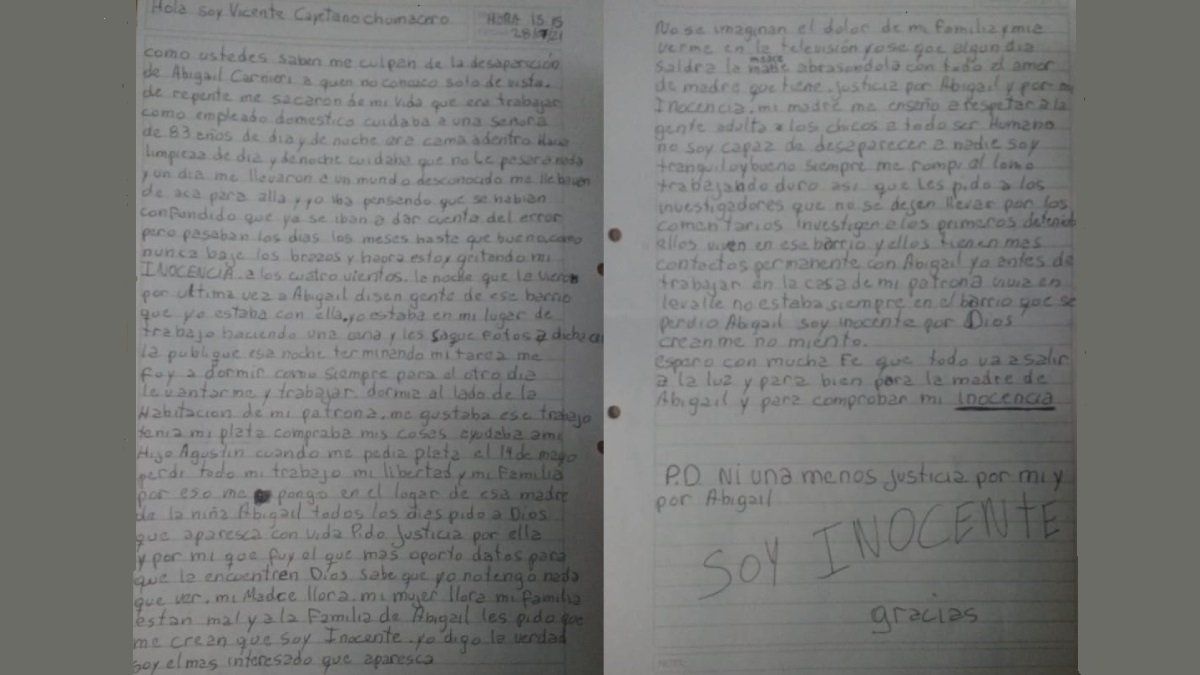 Hola soy Vicente Cayetano chumacero
HORA 15 15
28/7/21
como ustedes saben me culpan de la desaparición
de Abigail Carnieri a quen no conosco solo de vista.
de repente me sacaron de mi vida que era trabajar
como empleado domestico cuidaba a una señora
de 83 eños de dia y de noche era cama adentro Hacia
limpieza de dia y de noche cuidaba que no le pasara nada
y un dia me llevaron a un mundo desconocido me llebaven
de aca para alla y yo iba pensando que se habian
confundido que ya se iban a dar cuenta del error
pero pasaban los dias los meses haste que bueno como
nunca baje los brazos y haora estoy gritando mi
INOCENCIA. a los cuatro vientos. la noche que la vieron
por ultima vez a Abigail disen gente de ese barrio
que yo estaba con ella. yo estaba en mi logar de
trabajo haciendo una cena y les saque fotos a dicha
la publique esa noche terminando mi tarea me
fuy a dormir como siempre para el otro dia
levantarme y trabajar. dormia al lado de la
Habitacion de mi patrona. me gustaba ese trabajo
tenia mi plata compraba mis coses ayudaba a mi
Hijo Agustin cuando me pedia plata el 19 de mayo
perdi todo mi trabajo mi libertad y mi familia
por eso me pongo en el logar de esa madre
de la niña Abigail todos los dies pido a Dios
que aparesca con vida Pido justicia por ella
y por mi que fuy el que mas oporto datos para
que la encuentren Dios sabe que yo no tengo nada
que ver. mi Madre llora. mi mujer llora mi familia
estan mal y a la Familia de Abigail les pido que
me crean que soy Inocente. yo digo la verdad
soy el mas interesado que aparesca
No se imaginan el dolor de mi familia y mia
verme en la televisión yo se que algun dia
saldra la madre abrasondola con todo el amor
de madre que tiene. justicia por Abigail y por mi
Inocencia. mi madre me enseño a respetar a la
gente adulta a los chicos a todo ser Humano
no soy capaz de desaparecer a nadie soy
tranquilo y bueno siempre me rompi el lomo
trabajando duro asi que les pido a los
investigadores que no se dejen llevar por los
comentarios investigen a los primeros detenidos
ellos viven en ese barrio y ellos tienen mas
contactos permanente con Abigail yo antes de
trabajar en la casa de mi patrona vivia en
levalle no estaba siempre en el barrio que se
perdio Abigail soy inocente por Dios
creanme no miento.
espero con mucha Fe que todo va a salir
a la luz y para bien para la madre de
Abigail y para comprobar mi Inocencia
P.D Ni una menos justicia por mi y
por Abigail
SOY INOCENTE
gracias